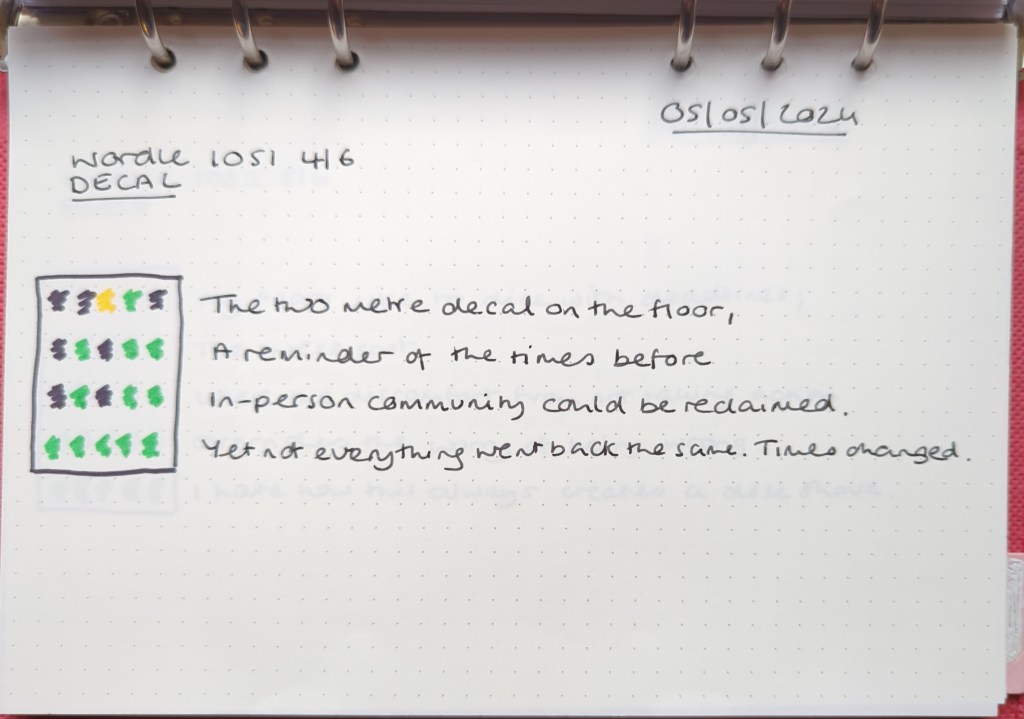 05/05/2024
Wordle 1051 4/6
DECAL
The two metre decal on the floor,
A reminder of the times before
In-person community could be reclaimed.
Yet not everything went back the same. Times changed.